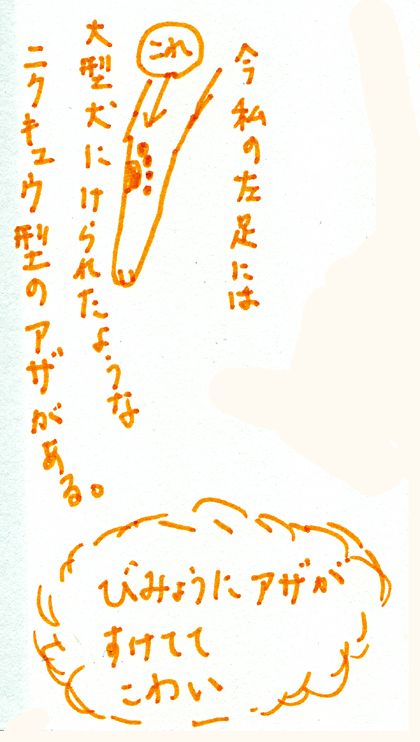 今私の左足には
これ
大型犬にけられたような
ニクキュウ型のアザがある。
びみょうにアザが
すけてて
こわい